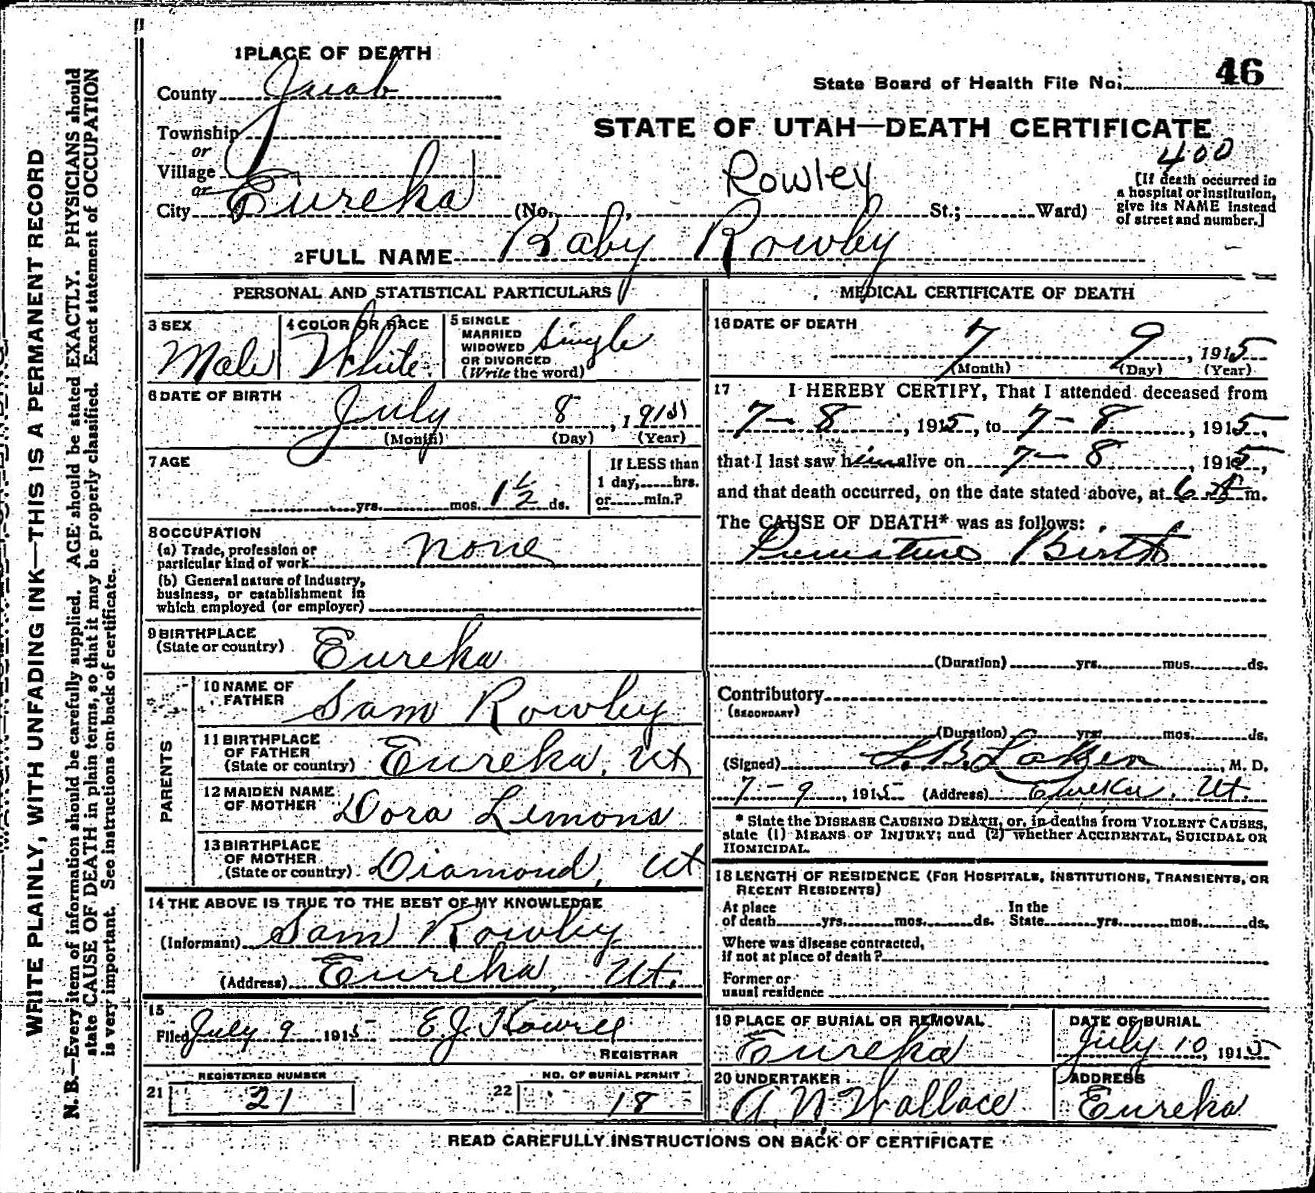 1 PLACE OF DEATH
State Board of Health File No. 46
County Juab
STATE OF UTAH—DEATH CERTIFICATE
Township
or
Village
or
City Eureka
400
[If death occurred in
a hospital or institution,
give its NAME instead
of street and number.]
Rowley
(No. , St.; Ward)
2 FULL NAME Baby Rowley
PERSONAL AND STATISTICAL PARTICULARS
3 SEX
Male
4 COLOR OR RACE
White
5 SINGLE
MARRIED
WIDOWED
OR DIVORCED
(Write the word)
Single
6 DATE OF BIRTH
July 8, 1915
(Month) (Day) (Year)
7 AGE
yrs. mos. 1½ ds.
If LESS than
1 day, hrs.
or min.?
8 OCCUPATION
(a) Trade, profession or
particular kind of work none
(b) General nature of Industry,
business, or establishment in
which employed (or employer)
9 BIRTHPLACE
(State or country) Eureka
PARENTS
10 NAME OF
FATHER Sam Rowley
11 BIRTHPLACE
OF FATHER
(State or country) Eureka, Ut
12 MAIDEN NAME
OF MOTHER Dora Lemons
13 BIRTHPLACE
OF MOTHER
(State or country) Diamond, Ut
14 THE ABOVE IS TRUE TO THE BEST OF MY KNOWLEDGE
(Informant) Sam Rowley
(Address) Eureka, Ut.
15
Filed July 9 1915 E. J. Howell
REGISTRAR
REGISTERED NUMBER
21 21
NO. OF BURIAL PERMIT
22 18
MEDICAL CERTIFICATE OF DEATH
16 DATE OF DEATH
7 9, 1915
(Month) (Day) (Year)
17 I HEREBY CERTIFY, That I attended deceased from
7-8, 1915, to 7-8, 1915,
that I last saw him alive on 7-8, 1915,
and that death occurred, on the date stated above, at 6 A m.
The CAUSE OF DEATH* was as follows:
Premature Birth
(Duration) yrs. mos. ds.
Contributory
(SECONDARY)
(Duration) yrs. mos. ds.
(Signed) M. D.
7-9, 1915 (Address) Eureka, Ut.
* State the DISEASE CAUSING DEATH, or, in deaths from VIOLENT CAUSES,
state (1) MEANS OF INJURY; and (2) whether ACCIDENTAL, SUICIDAL OR
HOMICIDAL.
18 LENGTH OF RESIDENCE (FOR HOSPITALS, INSTITUTIONS, TRANSIENTS, OR
RECENT RESIDENTS)
At place
of death yrs. mos. ds.
In the
State yrs. mos. ds.
Where was disease contracted,
if not at place of death?
Former or
usual residence
19 PLACE OF BURIAL OR REMOVAL
Eureka
DATE OF BURIAL
July 10, 1915
20 UNDERTAKER
A. N. Wallace
ADDRESS
Eureka
READ CAREFULLY INSTRUCTIONS ON BACK OF CERTIFICATE
WRITE PLAINLY, WITH UNFADING INK—THIS IS A PERMANENT RECORD
N. B.—Every item of information should be carefully supplied. AGE should be stated EXACTLY. PHYSICIANS should
state CAUSE OF DEATH in plain terms, so that it may be properly classified. Exact statement of OCCUPATION
is very important. See instructions on back of certificate.